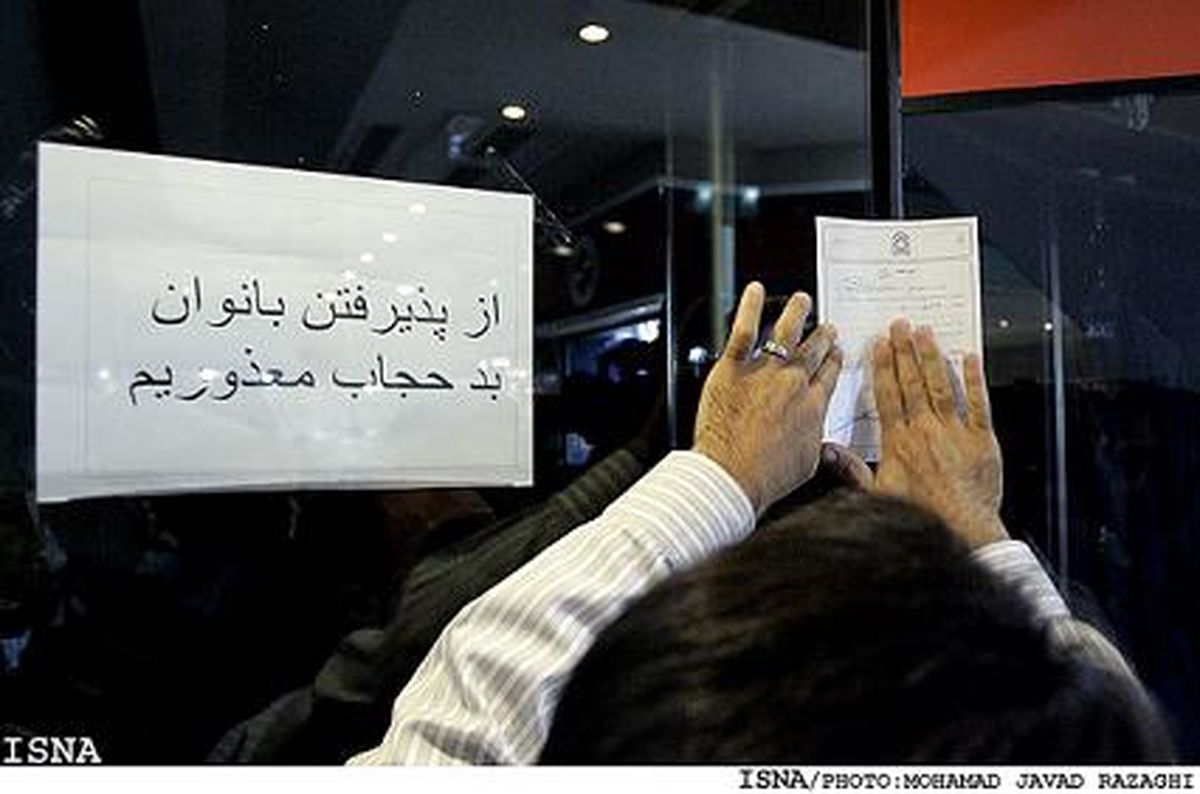 از پذیرفتن بانوان
بد حجاب معذوریم
ISNA
ISNA/PHOTO:MOHAMAD JAVAD RAZAGHI